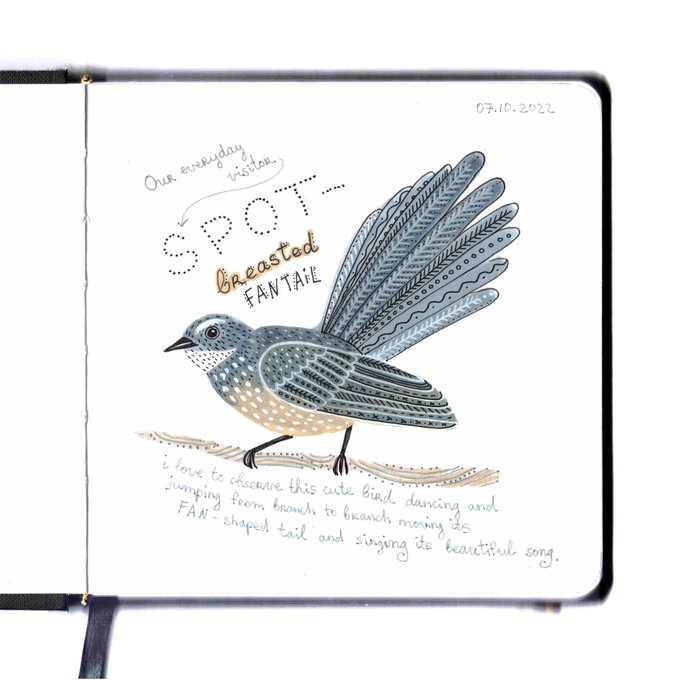 07.10.2022
Our everyday
visitor
SPOT-
breasted
FANTAIL
i love to observe this cute bird dancing and
jumping from branch to branch moving its
FAN-shaped tail and singing its beautiful song.